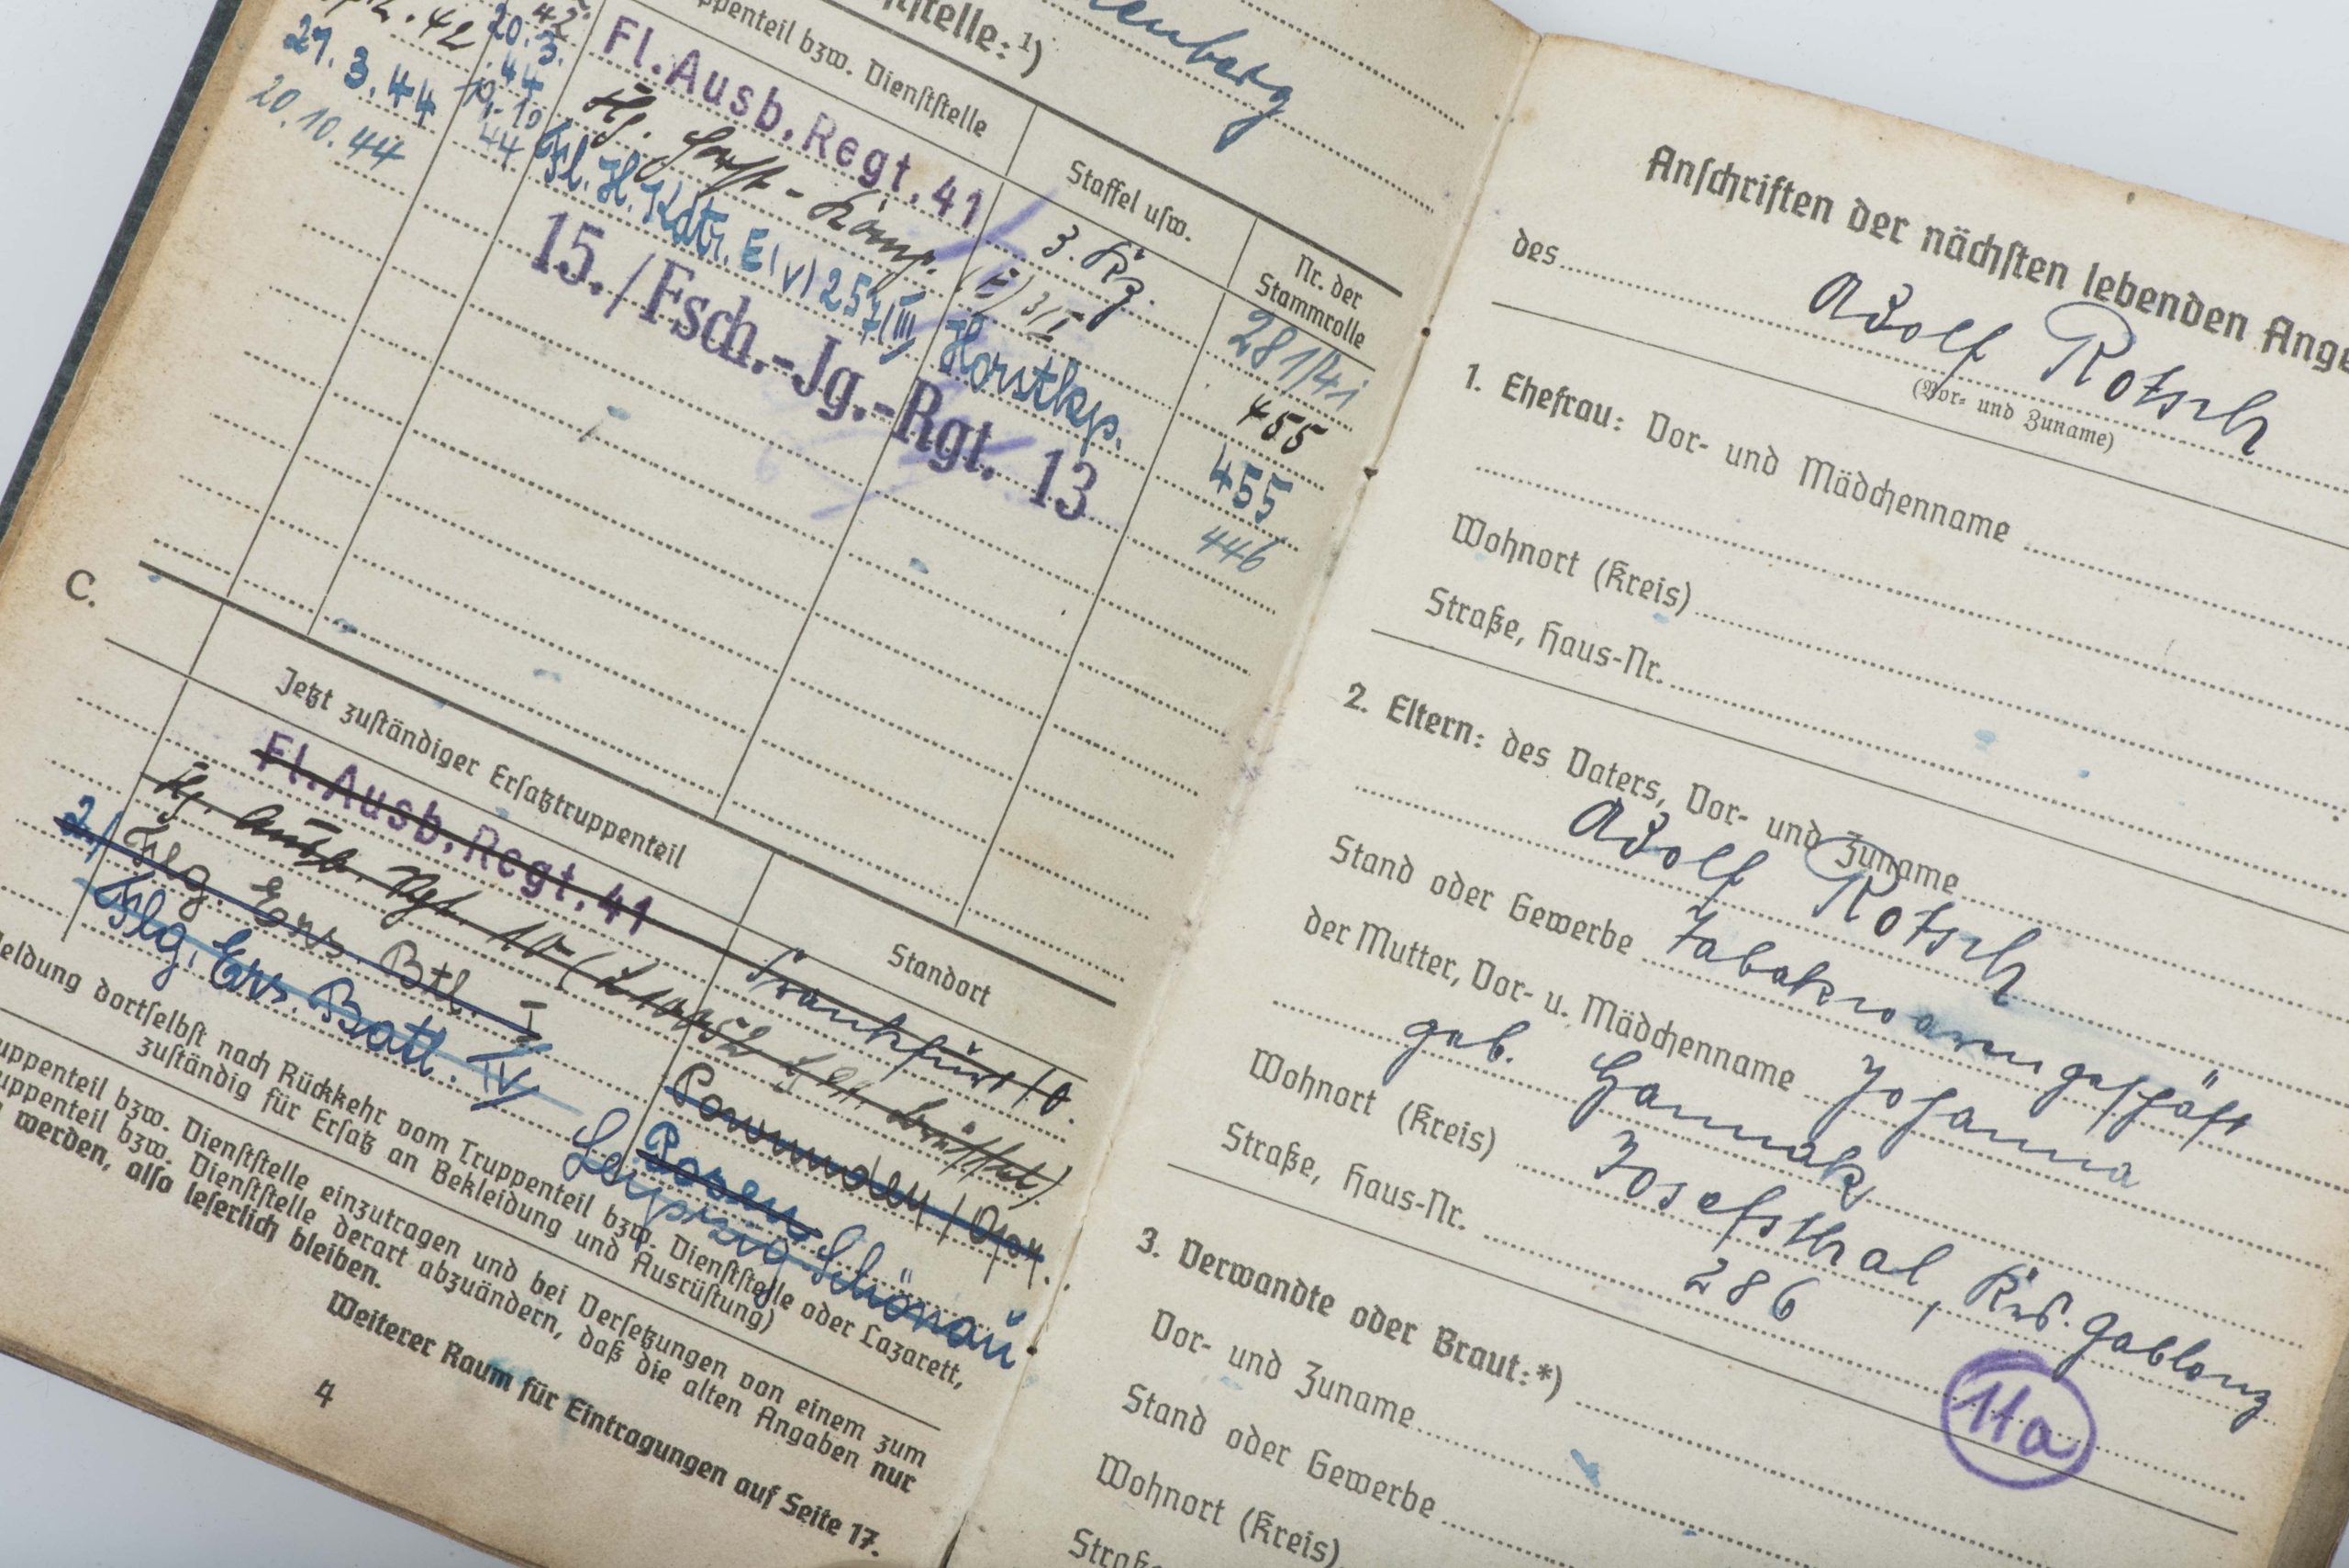 42
20. 3.
27. 3. 44
44
20. 10. 44
10.
44
ststelle:¹)
enberg
ppenteil bzw. Dienststelle
Staffel usw.
Nr. der
Stammrolle
Fl. Ausb. Regt. 41
3. Kp.
281/41
Komp.
455
Fl. H. Kdtr. E(v) 257/III
Horstkp.
455
15./Fsch.-Jg.-Rgt. 13
446
C.
Jetzt zuständiger Ersatztruppenteil
Standort
Fl. Ausb. Regt. 41
Frankfurt/O.
2./ Flg. Ers. Btl. I
Flg. Ers. Batl. IV
Posen
Leipzig Schönau
eldung dortselbst nach Rückkehr vom Truppenteil bzw. Dienststelle oder Lazarett,
zuständig für Ersatz an Bekleidung und Ausrüstung)
uppenteil bzw. Dienststelle einzutragen und bei Versetzungen von einem zum
uppenteil bzw. Dienststelle derart abzuändern, daß die alten Angaben nur
werden, also leserlich bleiben.
Weiterer Raum für Eintragungen auf Seite 17.
4
Anschriften der nächsten lebenden Ange
des Adolf Rotsch
(Vor- und Zuname)
1. Ehefrau: Vor- und Mädchenname
Wohnort (Kreis)
Straße, Haus-Nr.
2. Eltern: des Vaters, Vor- und Zuname
Adolf Rotsch
Stand oder Gewerbe Tabakwarengeschäft
der Mutter, Vor- u. Mädchenname Johanna
geb. Hannak
Wohnort (Kreis) Josefsthal, Krs. Gablonz
Straße, Haus-Nr. 286
11a
3. Verwandte oder Braut:*)
Vor- und Zuname
Stand oder Gewerbe
Wohnort (Kreis)